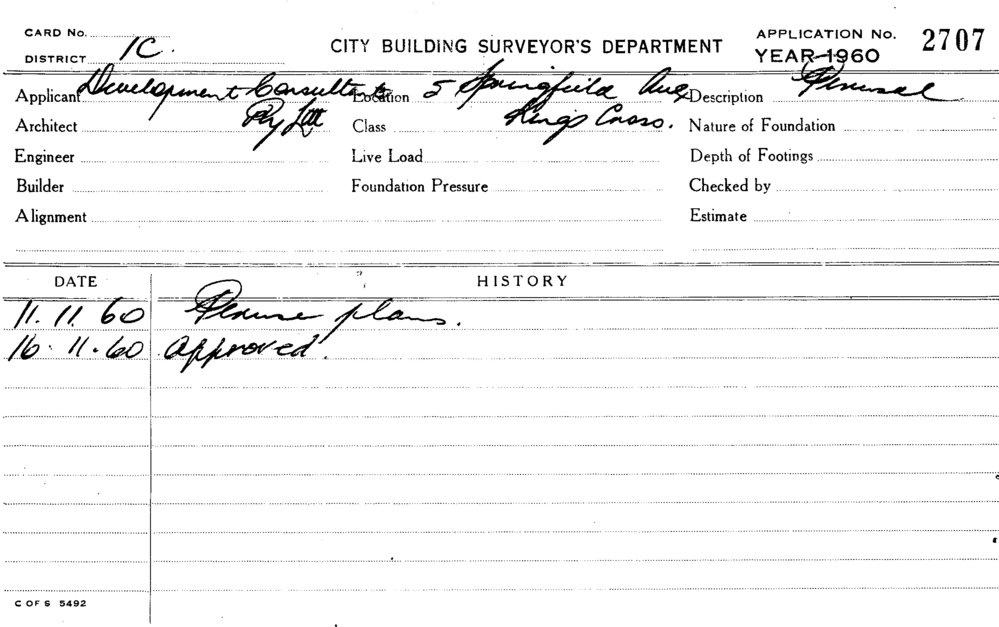 CARD No.
DISTRICT 1C.
CITY BUILDING SURVEYOR'S DEPARTMENT
APPLICATION No. 2707
YEAR-1960
Applicant Development Consultants Location 5 Springfield Ave Description Perusal
Architect Pty Ltd Class Kings Cross. Nature of Foundation
Engineer Live Load Depth of Footings
Builder Foundation Pressure Checked by
Alignment Estimate
DATE HISTORY
11.11.60 Peruse plans.
16.11.60 Approved.
C OF S 5492